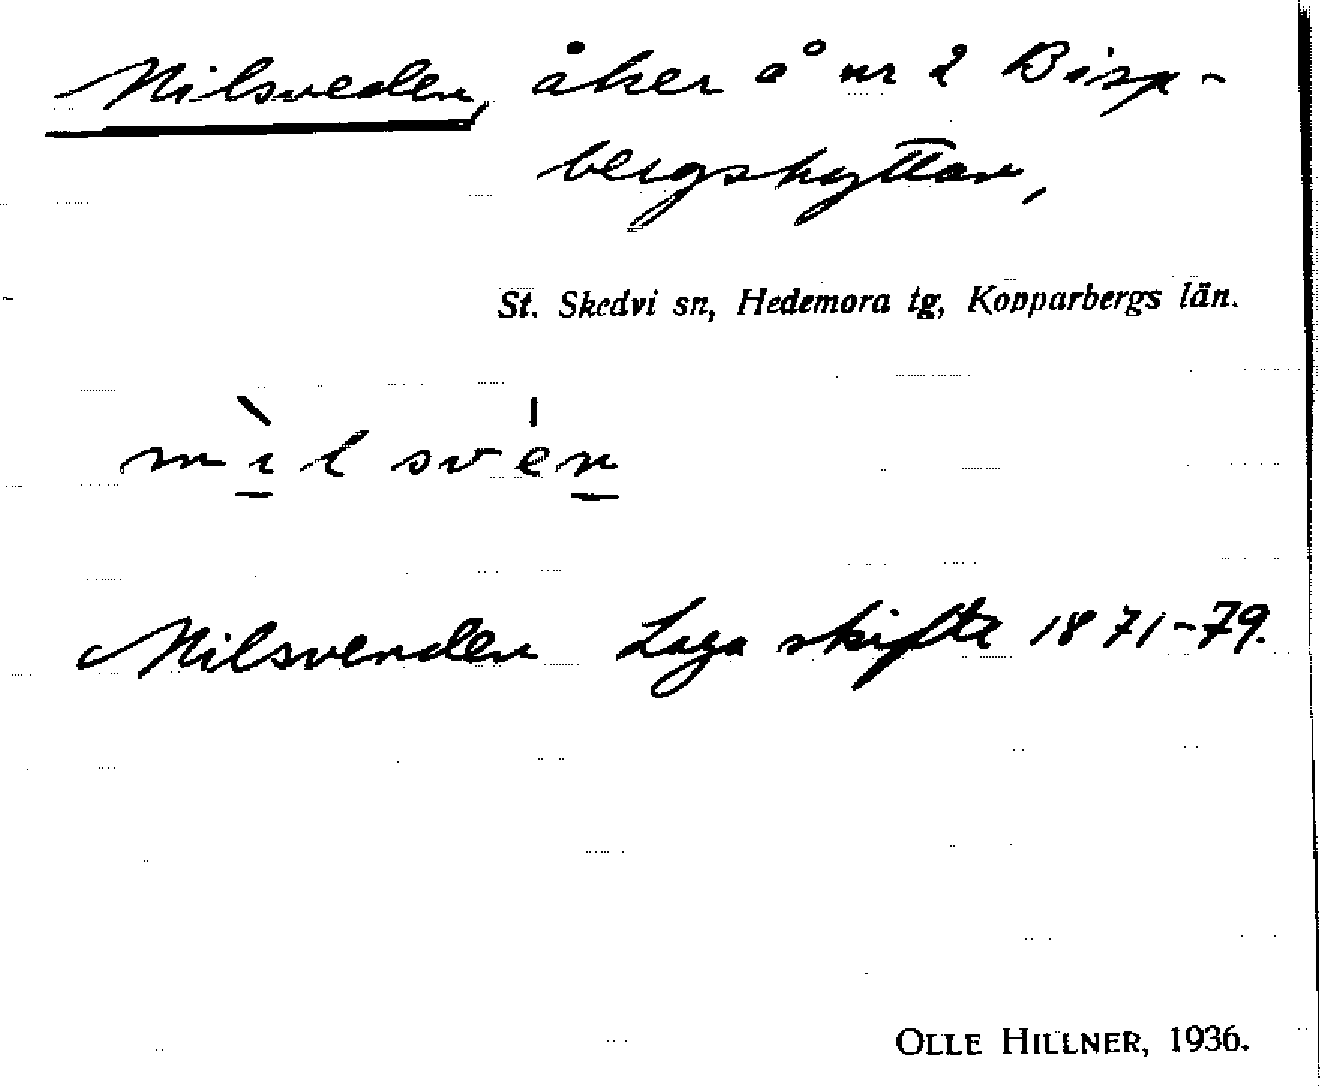 Nilsveden, åker å nr 2 Bisp-
bergshyttan,
St. Skedvi sn, Hedemora tg, Kopparbergs län.
nìlsvén
Nilsvenden Laga skifte 1871-79.
OLLE HILLNER, 1936.